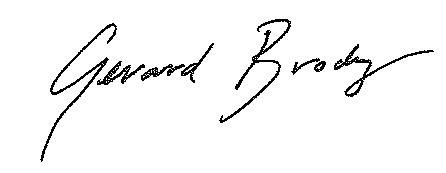 Gerard Brody